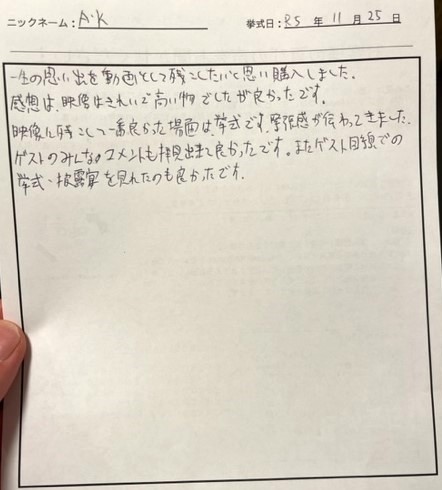 ニックネーム：A・K 挙式日：R5年11月25日
一生の思い出を動画として残こしたいと思い購入しました。
感想は、映像はきれいで高い物でしたが良かったです。
映像に残こして一番良かった場面は、挙式です。緊張感が伝わってきました。
ゲストのみんなのコメントも拝見出来て良かったです。またゲスト目線での
挙式・披露宴を見れたのも良かったです。